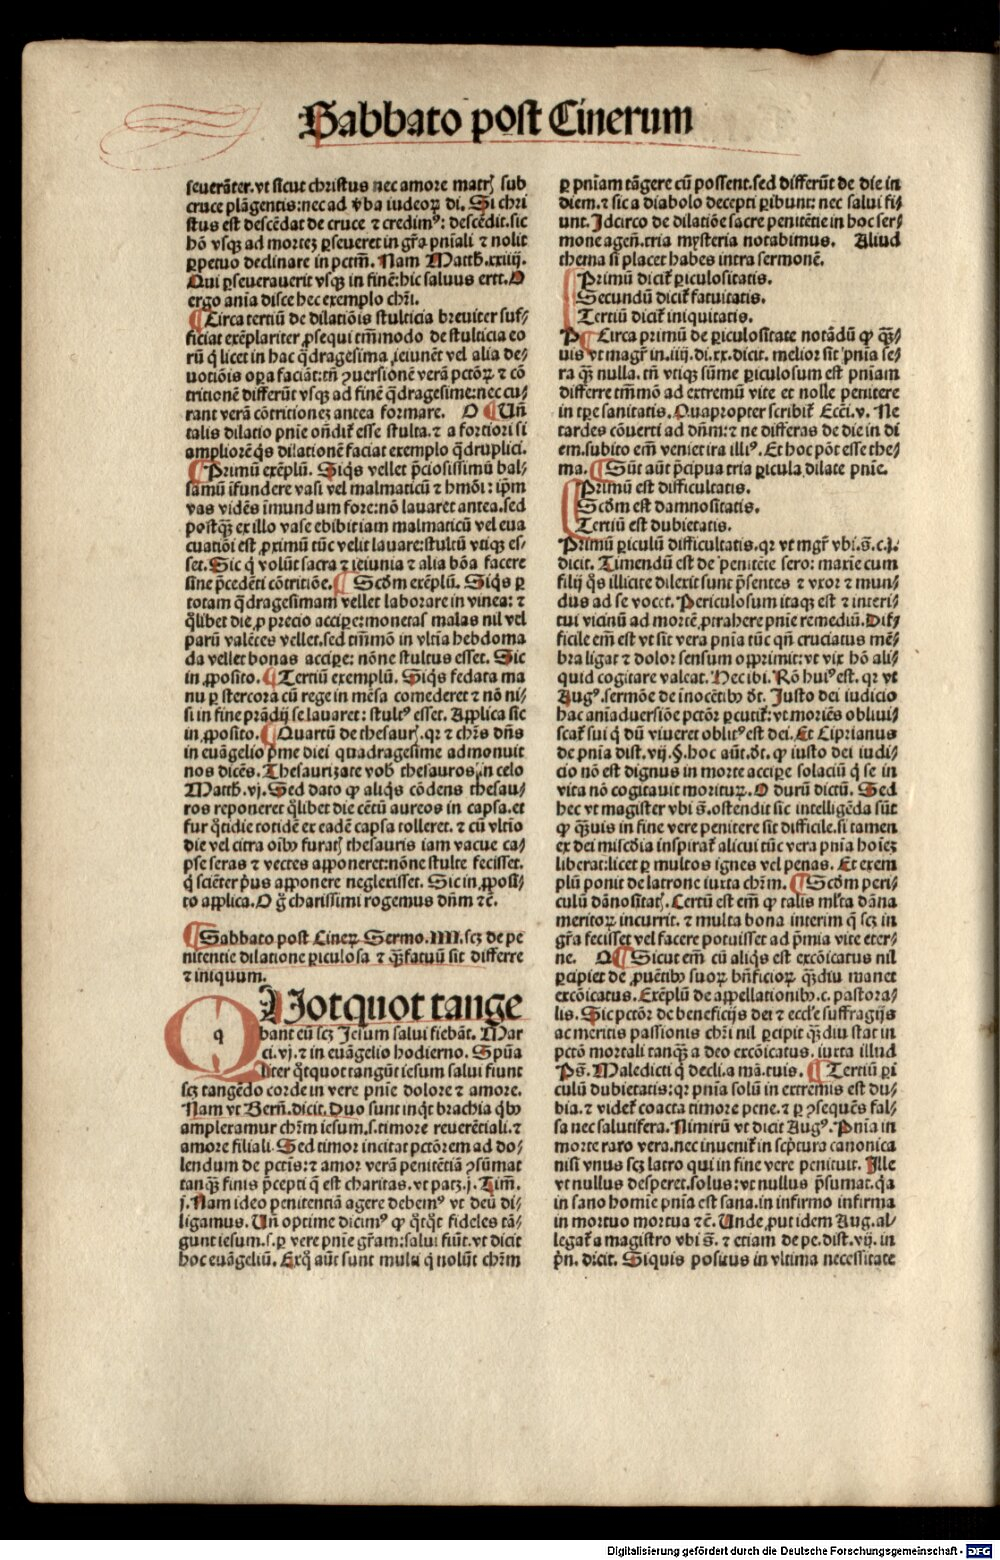 Sabbato post Cinerum
seuerāter. vt sicut christus nec amore matrꝭ sub
cruce plāgentis: nec ad v̄ba iudeoꝝ di. Si chri
stus est descēdat de cruce ⁊ credimꝰ: descēdit. sic
hō vsqꝫ ad morteꝫ ꝑseueret in gr̄a pn̄iali ⁊ nolit
ꝑpetuo declinare in pctm̄. Nam Matth. xxiiij.
Qui ꝑseuerauerit vsqꝫ in finē: hic saluus erit. O
ergo anīa disce hec exemplo chrī.
¶ Circa tertiū de dilatiōis stulticia breuiter suf⸗
ficiat exēplariter ꝓsequi tm̄modo de stulticia eo
rū q̇ licet in hac q̈dragesima ieiunēt vel alia de⸗
uotiōis oꝑa faciāt: tn̄ ꝯuersionē verā pctōꝝ ⁊ cō
tritionē differūt vsqꝫ ad finē q̈dragesime: nec cu⸗
rant verā cōtritioneꝫ antea formare. O ¶ Un̄
talis dilatio pnīe ondit̄ esse stulta. ⁊ a fortiori si
ampliorē q̇s dilationē faciat exemplo q̈druplici.
¶ Primū exēplū. Siq̇s vellet p̄ciosissimū bal⸗
samū īfundere vasi vel malmaticū ⁊ hmōi: ip̄m
vas vidēs imundum fore: nō lauaret antea. sed
postqꝫ ex illo vase ebibit iam malmaticū vel eua
cuatiōi est ꝓximū tūc velit lauare: stultū vtiqꝫ es⸗
set. Sic q̇ volūt sacra ⁊ ieiunia ⁊ alia bōa facere
sine p̄cedēti cōtritiōe. ¶ Scd̄m exēplū. Siq̇s ꝑ
totam q̈dragesimam vellet laborare in vinea: ⁊
q̈libet die ꝓ precio accipe: monetas malas nil vel
parū valētes vellet. sed tm̄mō in vltīa hebdoma
da vellet bonas accipe: nōne stultus esset. Sic
in ꝓposito. ¶ Tertiū exemplū. Siq̇s fedata ma
nu ꝑ stercora cū rege in mēsa comederet ⁊ nō ni⸗
si in fine prādij se lauaret: stultꝰ esset. Applica sic
in ꝓposito. ¶ Quartū de thesaurꝭ. qꝛ ⁊ chrs̄ dn̄s
in euāgelio p̄me diei quadragesime admonuit
nos dicēs. Thesaurizate vob thesauros in celo
Matth. vj. Sed dato ꝙ aliq̇s cōdens thesau⸗
ros reponeret q̈libet die cētū aureos in capsa. et
fur q̈tidie totidē ex eadē capsa tolleret. ⁊ cū vltīo
die vel citra oībꝫ furatꝭ thesauris iam vacue ca⸗
pse seras ⁊ vectes apponeret: nōne stulte fecisset.
q̇ sciēter pꝰus apponere neglexisset. Sic in ꝓposi⸗
to applica. O g̊ charissimi rogemus dn̄m ⁊c̄.
¶ Sabbato post Cineꝝ Sermo. IIII. scꝫ de pe
nitentie dilatione ꝑiculosa ⁊ qꝫ fatuū sit differre
⁊ iniquum.
QUotquot tange
bant eū scꝫ Jesum salui fiebāt. Mar
ci. vj. ⁊ in euāgelio hodierno. Spūa
liter q̈tquot tangūt iesum salui fiunt
scꝫ tangēdo corde in vere pnīe dolore ⁊ amore.
Nam vt Bern̄. dicit. Duo sunt inq̇t brachia q̇bꝫ
amplexamur chrm̄ iesum. s. timore reuerētiali. ⁊
amore filiali. Sed timor incitat pctōrem ad do⸗
lendum de pctīs: ⁊ amor verā penitētiā ꝯsūmat
tanqꝫ finis p̄cepti q̄ est charitas. vt patꝫ. j. Tim̄.
j. Nam ideo penitentiā agere debemꝰ vt deū di⸗
ligamus. Un̄ optime dicimꝰ ꝙ q̈tq̈t fideles tā⸗
gunt iesum. s. ꝑ vere pnīe gr̄am: salui fiūt. vt dicit
hoc euāgeliū. Exq̊ aūt sunt multi q̇ nolūt chrm̄
ꝑ pnīam tāgere cū possent. sed differūt de die in
diem. ⁊ sic a diabolo decepti ꝑibunt: nec salui fi⸗
unt. Idcirco de dilatiōe sacre penitētie in hoc ser⸗
mone agen̄. tria mysteria notabimus. Aliud
thema si placet habes intra sermonē.
Primū dicit̄ ꝑiculositatis.
Secundū dicit̄ fatuitatis.
Tertiū dicit̄ iniquitatis.
P ¶ Circa primū de ꝑiculositate notādū ꝙ qꝫ⸗
uis vt magr̄ in. iiij. di. xx. dicit. melior sit pnīa se⸗
ra qꝫ nulla. tn̄ vtiqꝫ sūme ꝑiculosum est pnīam
differre tm̄mō ad extremū vite et nolle penitere
in tꝑe sanitatis. Quapropter scribit̄ Eccī. v. Ne
tardes cōuerti ad dn̄m: ⁊ ne differas de die in di
em. subito em̄ veniet ira illiꝰ. Et hoc pōt esse the⸗
ma. ¶ Sūt aūt p̄cipua tria ꝑicula dilate pnīe.
Primū est difficultatis.
Scd̄m est damnositatis.
Tertiū est dubietatis.
Primū ꝑiculū difficultatis. qꝛ vt mgr̄ vbi. s̄. c. j.
dicit. Timendū est de penitēte sero: maxīe cum
filij q̄s illicite dilexit sunt p̄sentes ⁊ vxor ⁊ mun⸗
dus ad se vocet. Periculosum itaqꝫ est ⁊ interi⸗
tui vicinū ad mortē ꝓtrahere pnīe remediū. Dif⸗
ficile em̄ est vt sit vera pnīa tūc qn̄ cruciatus mē⸗
bra ligat ⁊ dolor sensum opprimit: vt vix hō ali⸗
quid cogitare valeat. Hec ibi. Rō huiꝰ est. qꝛ vt
Augꝰ. sermōe de inocētibꝫ dt. Justo dei iudicio
hac anīaduersiōe pctōr ꝑcutit̄: vt moriēs obliui⸗
scat̄ sui q̇ dū viueret oblitꝰ est dei. Et Ciprianus
de pnīa dist. vij. §. hoc aūt. dt. ꝙ iusto dei iudi⸗
cio nō est dignus in morte accipe solaciū q̇ se in
vita nō cogitauit moriturꝫ. O durū dictū. Sed
hec vt magister vbi s̄. ostendit sic intelligēda sūt
ꝙ qꝫuis in fine vere penitere sit difficile. si tamen
ex dei miscd̄ia inspirat̄ alicui tūc vera pnīa hoīeꝫ
liberat: licet ꝑ multos ignes vel penas. Et exem
plū ponit de latrone iuxta chrm̄. ¶ Scd̄m peri⸗
culū dānositatꝭ. Certū est em̄ ꝙ talis ml̄ta dāna
meritoꝝ incurrit. ⁊ multa bona interim q̄ scꝫ in
gr̄a fecisset vel facere potuisset ad p̄mia vite eter⸗
ne. Q ¶ Sicut em̄ cū aliq̇s est excōicatus nil
ꝑcipiet de ꝓuētibꝫ suoꝝ bn̄ficioꝝ qꝫdiu manet
excōicatus. Exēplū de appellationibꝫ. c. pastora⸗
lis. Sic pctōr de beneficijs dei ⁊ eccl̄e suffragijs
ac meritis passionis chrī nil ꝑcipit qꝫdiu stat in
pctō mortali tanqꝫ a deo excōicatus. iuxta illud
Ps̄. Maledicti q̇ decli. a mā. tuis. ¶ Tertiū ꝑi
culū dubietatis: qꝛ pnīa solū in extremis est du⸗
bia. ⁊ videt̄ coacta timore pene. ⁊ ꝑ ꝯsequēs fal⸗
sa nec salutifera. Nimirū vt dicit Augꝰ. Pnīa in
morte raro vera. nec inuenit̄ in scp̄tura canonica
nisi vnus scꝫ latro qui in fine vere penituit. Ille
vt nullus desperet. solus: vt nullus p̄sumat. q̈a
in sano homīe pnīa est sana. in infirmo infirma
in mortuo mortua ⁊c̄. Unde ꝓut idem Aug. al⸗
legat̄ a magistro vbi s̄. ⁊ etiam de pe. dist. vij. in
p̄n. dicit. Siquis positus in vltima necessitate
Digitalisierung gefördert durch die Deutsche Forschungsgemeinschaft - DFG